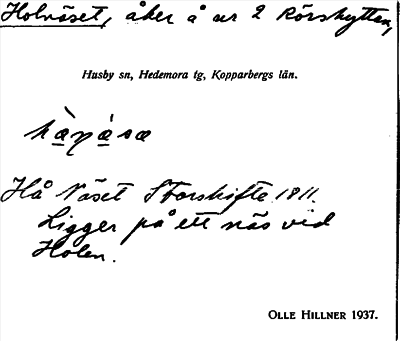 Holnäset, åker å nr 2 Rörshyttan,
Husby sn, Hedemora tg, Kopparbergs län.
Hå Näset Storskifte 1811.
Ligger på ett näs vid
Holen.
OLLE HILLNER 1937.